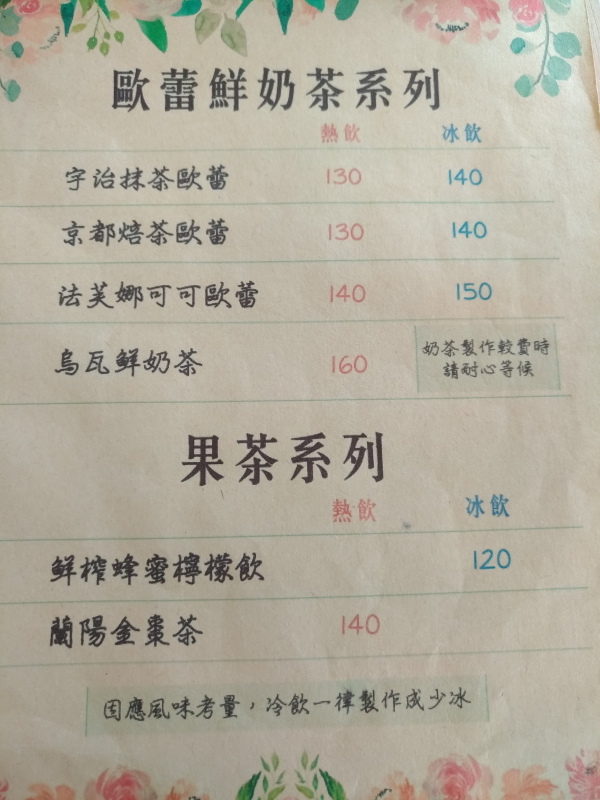 歐蕾鮮奶茶系列
熱飲 冰飲
宇治抹茶歐蕾 130 140
京都焙茶歐蕾 130 140
法芙娜可可歐蕾 140 150
烏瓦鮮奶茶 160
奶茶製作較費時
請耐心等候
果茶系列
熱飲 冰飲
鮮榨蜂蜜檸檬飲 120
蘭陽金棗茶 140
因應風味考量，冷飲一律製作成少冰